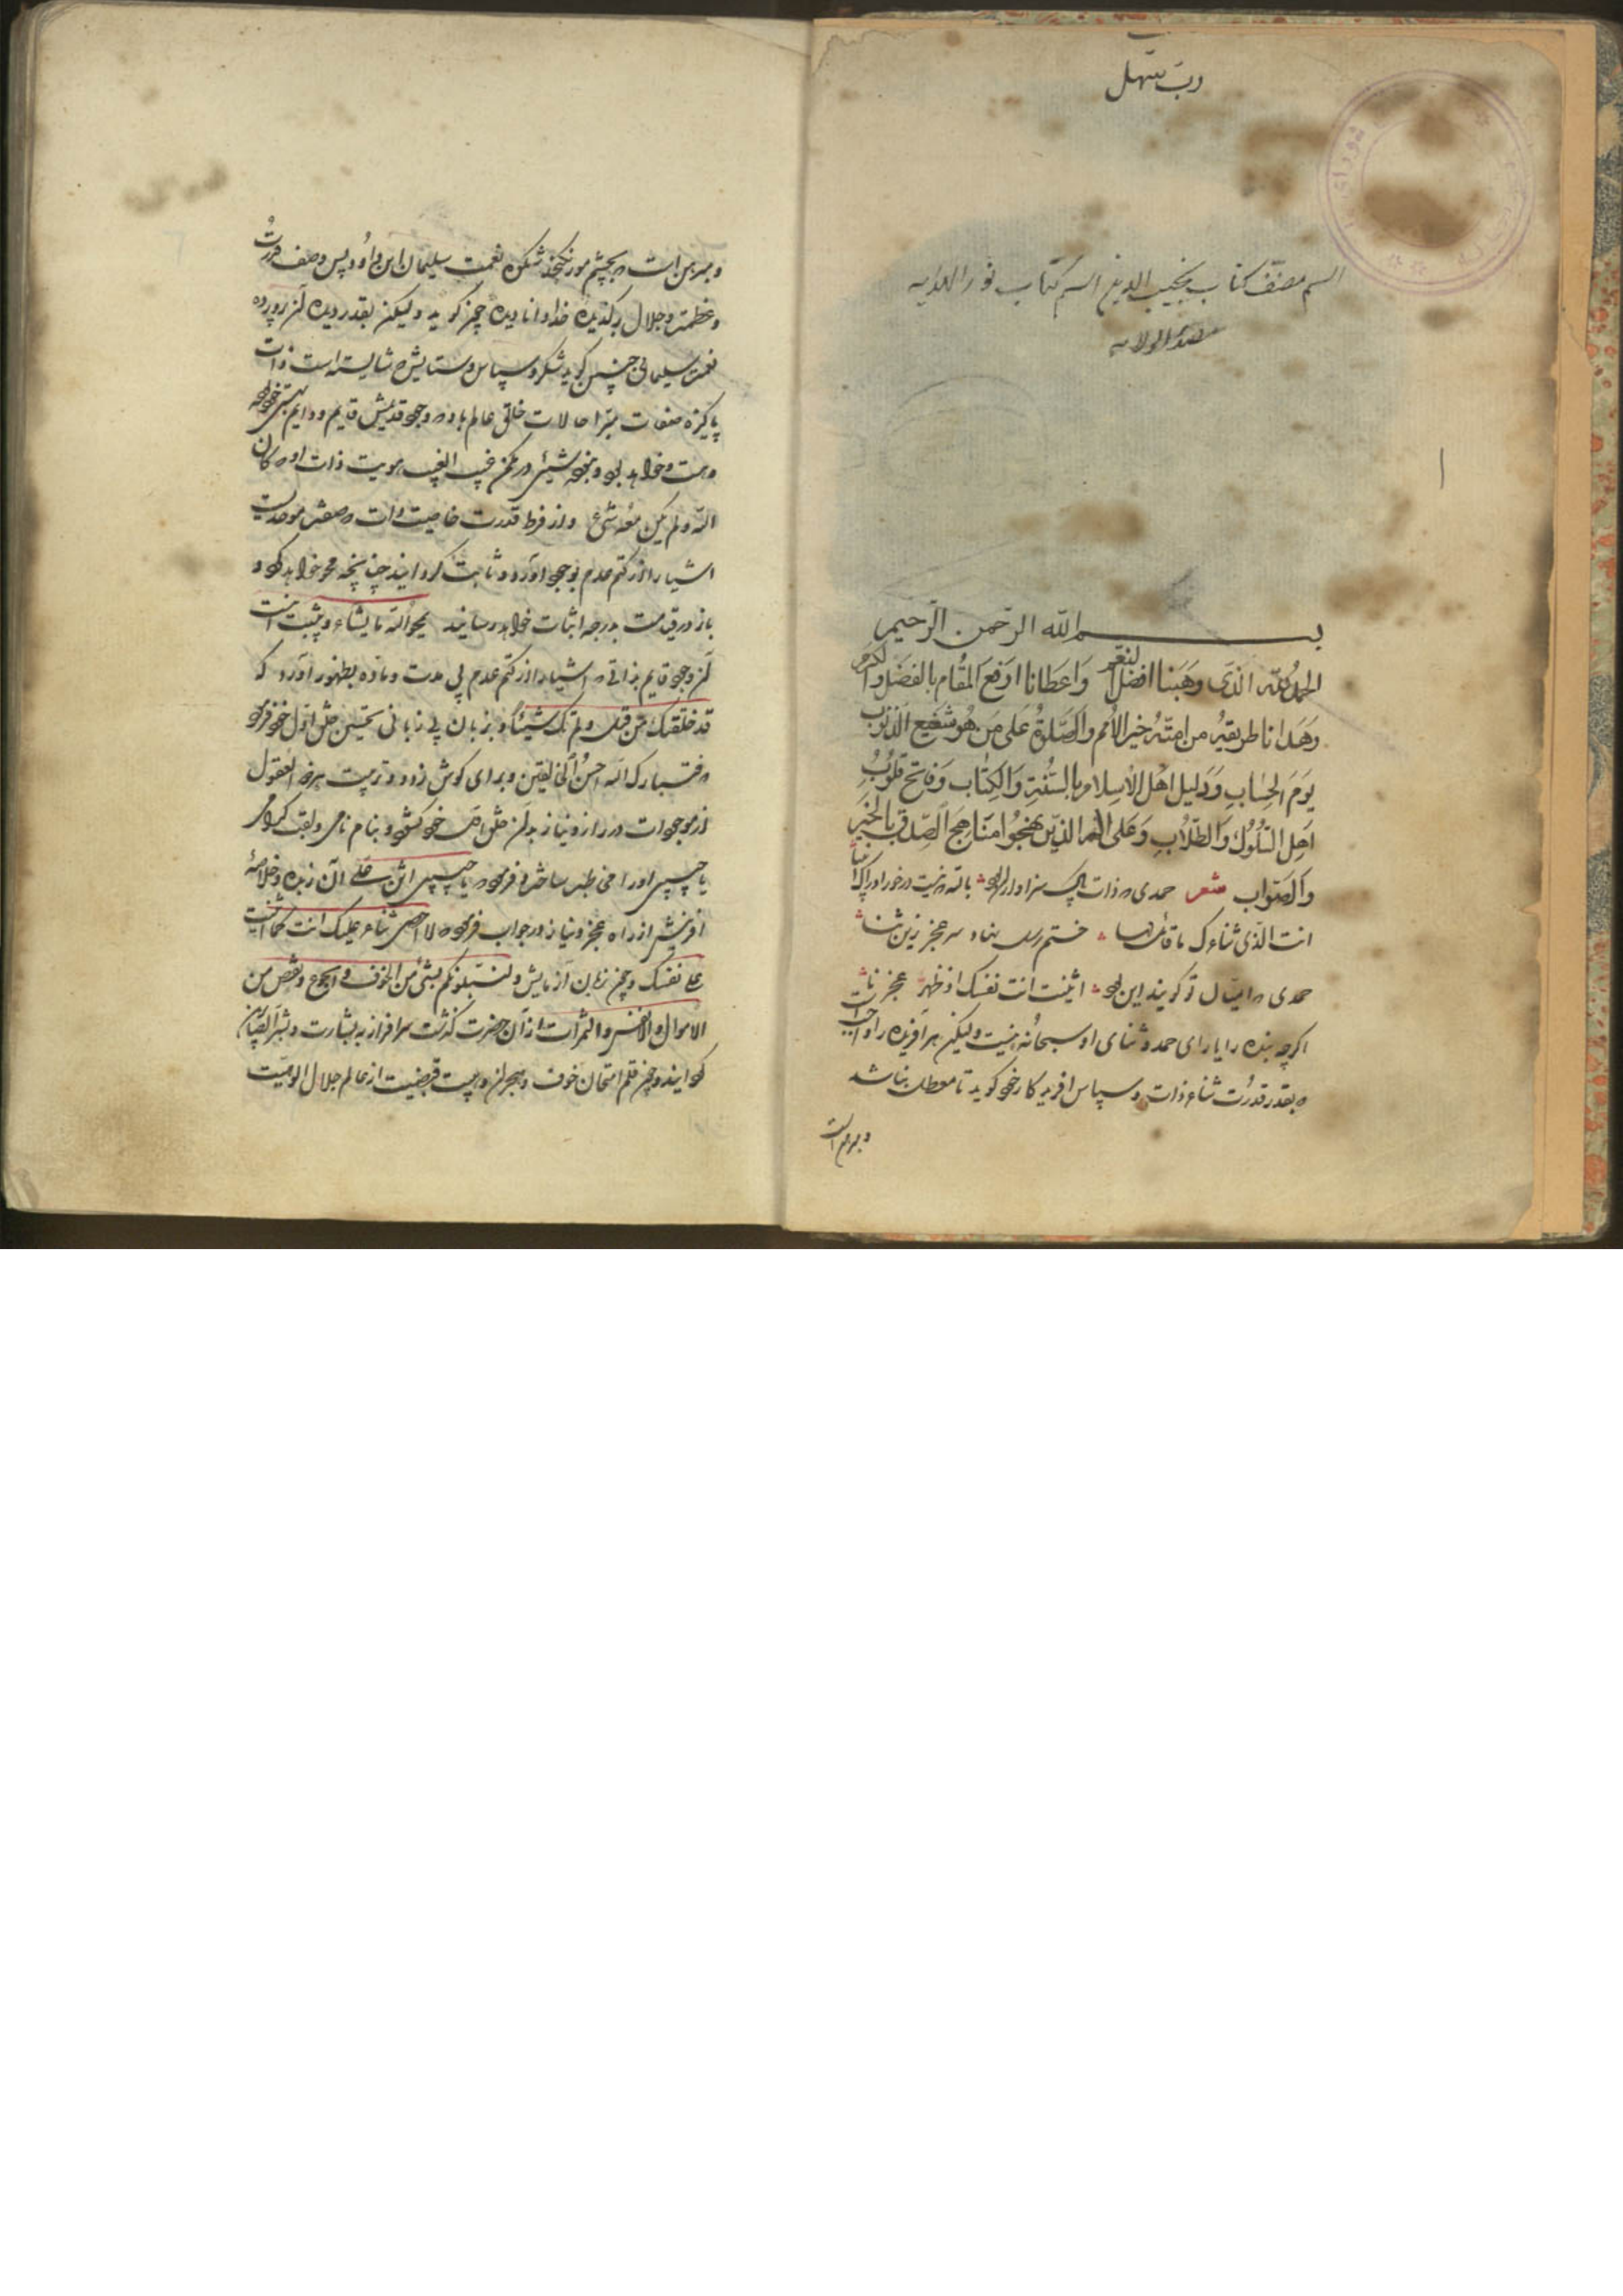 رب سهل
اسم مصنف کتاب نجیب الدین اسم کتاب نور الهدایه
بسم الله الرحمن الرحیم
الحمد لله الذی وهبنا افضل النعم واعطانا ارفع المقام بالفضل والکرم
وهدانا طریقة من امته خیر الامم والصلوة علی من هو شفیع الذنوب
یوم الحساب ودلیل اهل الاسلام بالسنة والکتاب وفاتح قلوب
اهل السلوک والطلاب وعلی آله الذین نهجوا مناهج الصدق بالخیر
والصواب شعر حمدی که ذات پاک سزاوار بود بالله که نیست درخور ادراک
انت الذی ثناءک ما قائل لها ختم رسل نهاد سر عجز زین ثنا
حمدی که امثال تو گویند این بود اثنیت انت نفسک اذ ظهر عجزنا
اگرچه بنده را یارای حمد و ثنای او سبحانه نیست ولیکن هر آفریده را واجبست
که بقدر قدرت ثناء ذات و سپاس آفریدگار خود گوید تا معطل نباشد
و مبرهن است
و مبرهن است که بچشم مور نگنجد شکوه نعمت سلیمان ابن داود پس وصف قدرت
و عظمت و جلال خداوند نادیده چون گوید ولیکن بقدر دیده
نعمت سلیمانی چنین گوید شکر و سپاس و ستایش که شایسته است ذات
پاکیزه صفات مبرا حالات خالق عالم باد که وجود قدیمش قایم و دایم
و هست و خواهد بود و نبود شیئی در مکمن غیب الغیب هویت ذات او که کان
الله ولم یکن معه شیء و از فرط قدرت خاصیت ذات
اشیا را از کتم عدم بوجود آورد و ثابت گردانید چنانچه محو خواهد کرد و
باز در قیامت بدرجه اثبات خواهد رسانید یمحو الله ما یشاء و یثبت
آن وجود قایم بذاتی که اشیا را از کتم عدم بی مدت و ماده بظهور آورد که
قد خلقتک من قبل ولم تک شیئا و بزبان بی زبانی تحسین خلق اول خود فرمود
که فتبارک الله احسن الخالقین و برای گوش زد و تربیت العقول
از موجودات در راز و نیاز بر آن خلق خود گشود و بنام نامی و لقب گرامی
یا حبیبی او را مخاطب ساخته فرمود که یا حبیبی اثن علی آن زبده و خلاصه
آفرینش از راه عجز و نیاز در جواب فرمود که لا احصی ثناء علیک انت کما اثنیت
علی نفسک و چون زمان آزمایش ولنبلونکم بشیء من الخوف والجوع ونقص من
الاموال والانفس والثمرات از آن حضرت گذشت سرافراز به بشارت وبشر الصابرین
گردانید و چون قلم امتحان خوف و از عالم جلال الوهیت